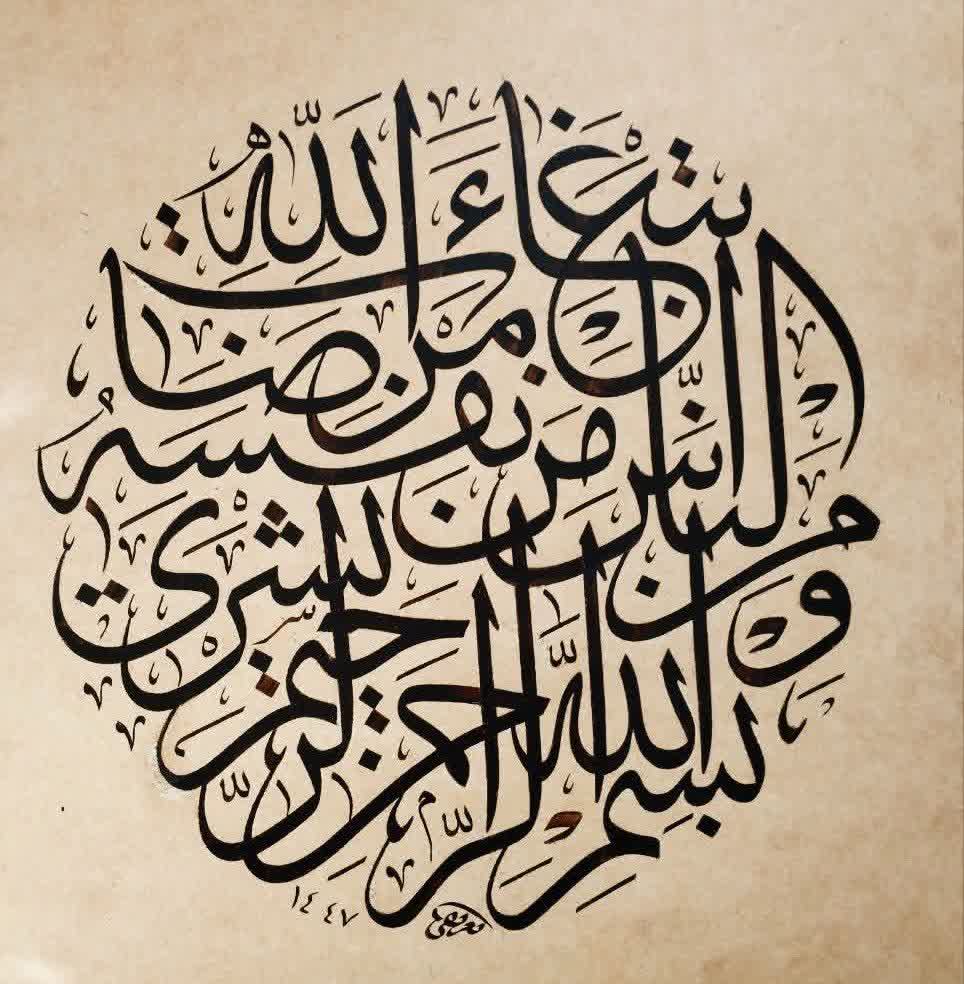 بسم الله الرحمن الرحيم
ومن الناس من يشري نفسه
ابتغاء مرضات الله
١٤٤٧